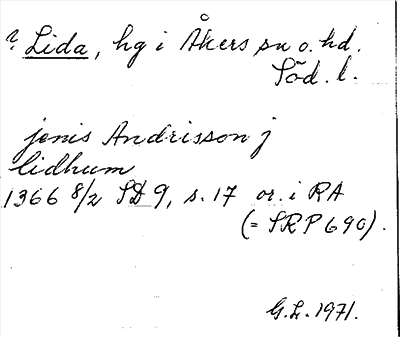 ? Lida, hg i Åkers sn o. hd.
Söd. l.
jonis Andrisson j
lidhum
1366 8/2 SD 9, s. 17 or. i RA
(= SRP 690).
G.L. 1971.